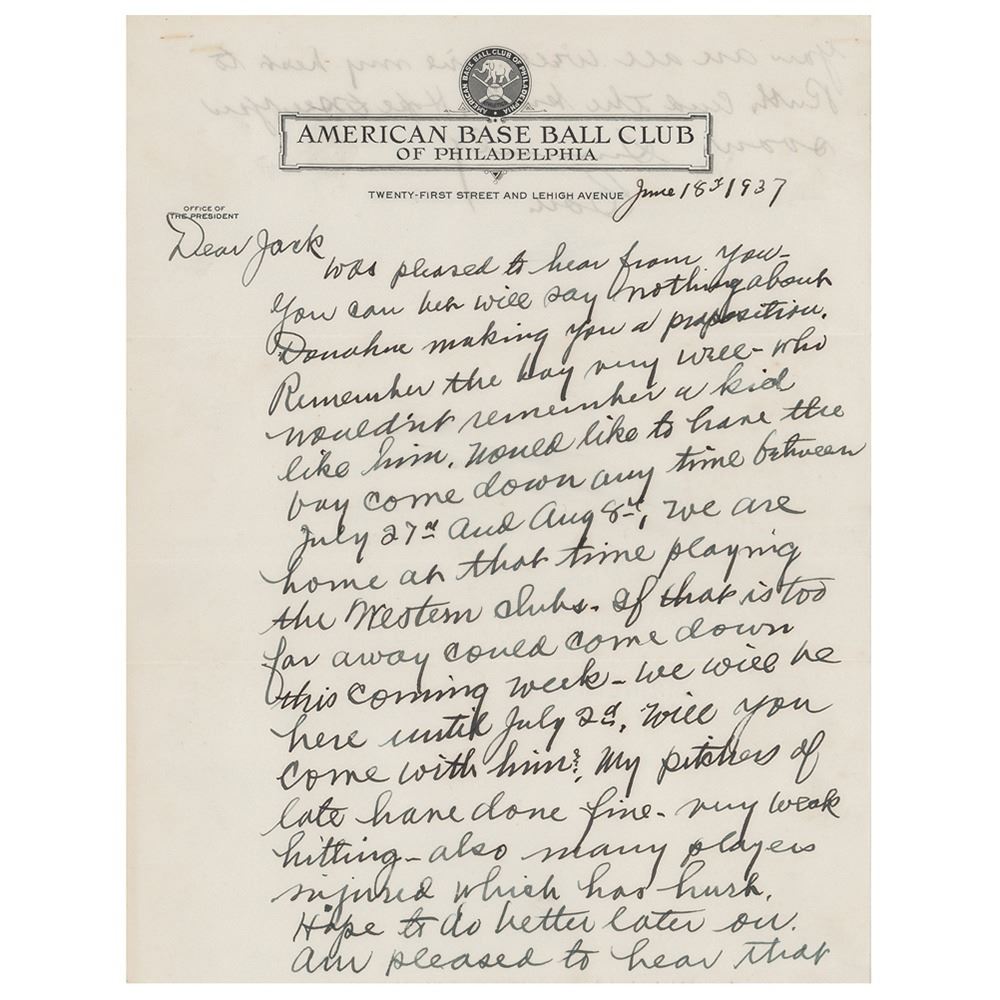 AMERICAN BASE BALL CLUB OF PHILADELPHIA
AMERICAN BASE BALL CLUB
OF PHILADELPHIA
TWENTY-FIRST STREET AND LEHIGH AVENUE June 18th 1937
OFFICE OF
THE PRESIDENT
Dear Jack
Was pleased to hear from you-
You can bet will say nothing about
Donahue making you a proposition.
Remember the boy very well- who
wouldn't remember a kid
like him. Would like to have the
boy come down any time between
July 27th and Aug 8th, we are
home at that time playing
the Western clubs- If that is too
far away could come down
this coming week- we will be
here until July 2d, will you
come with him? My pitchers of
late have done fine- very weak
hitting- also many players
injured which has hurt.
Hope to do better later on.
Am pleased to hear that
You are all well give my best to
Ruth and the Hope to see you
soon